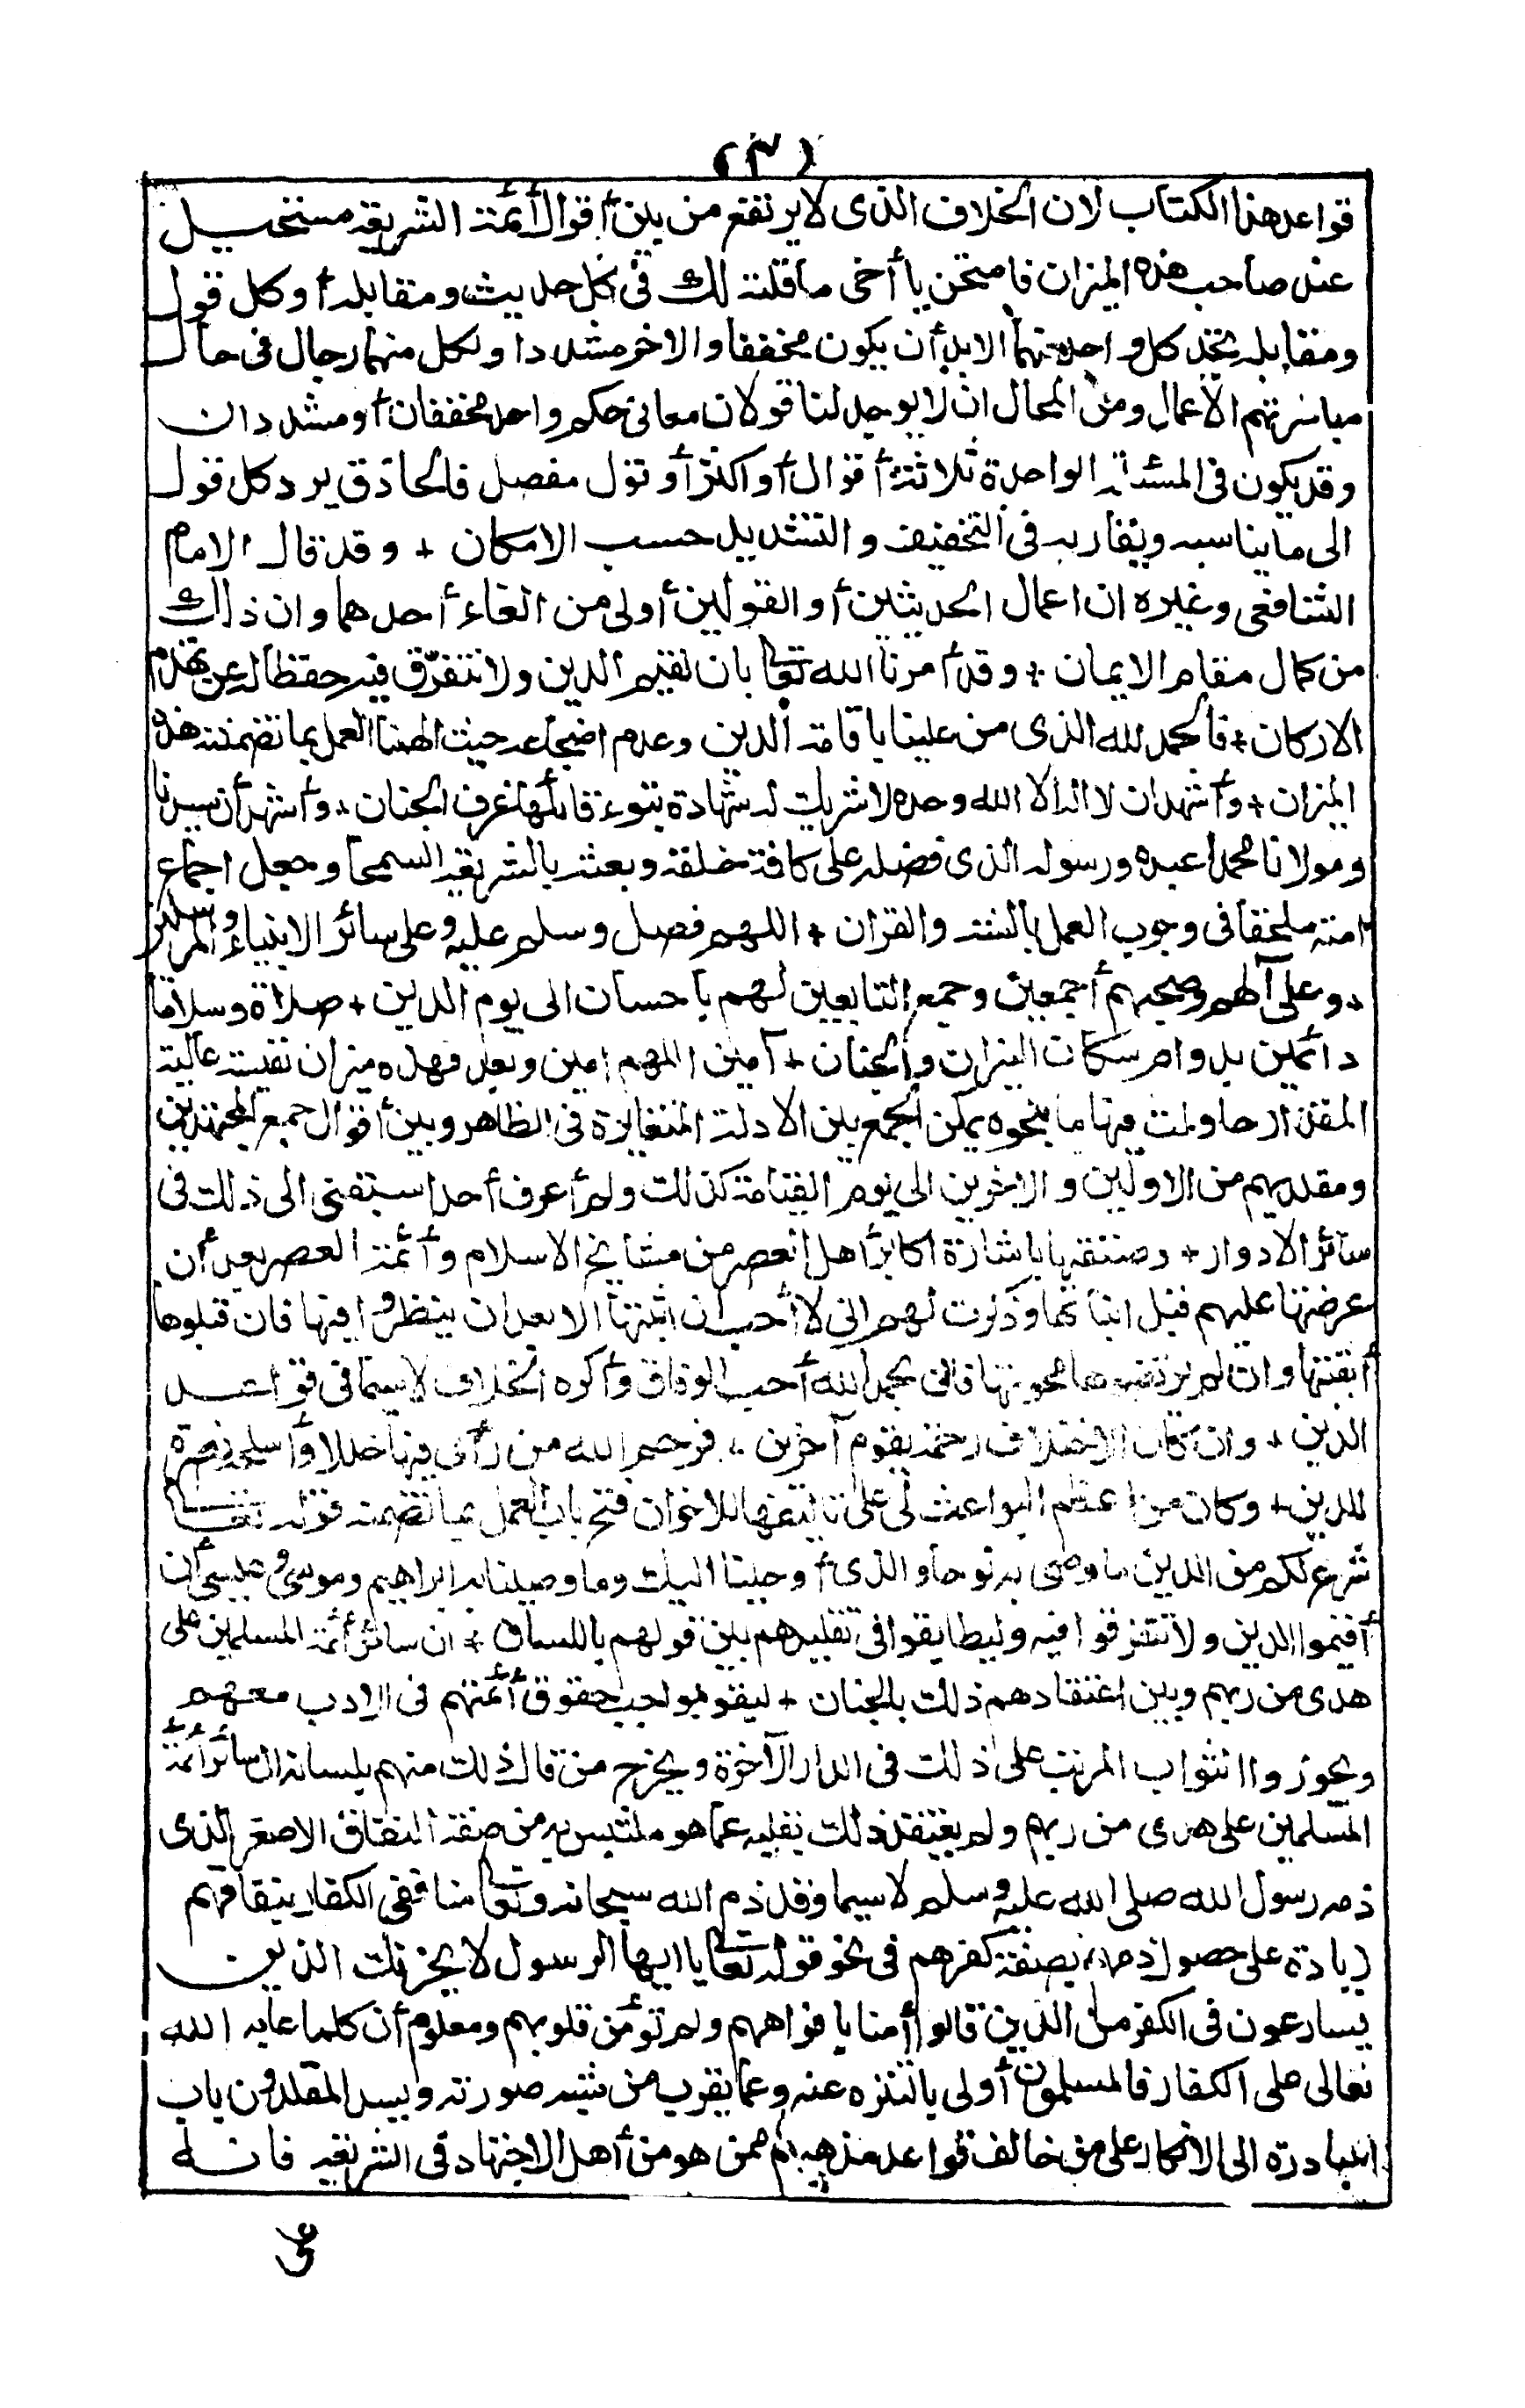 (٣)
قواعد هذا الكتاب لان الخلاف الذى لا يرتفع من بين أقوال أئمة الشريعة مستحيل
عند صاحب هذه الميزان فامتحن يا أخى ما قلته لك فى كل حديث ومقابله أو كل قول
ومقابله تجد كل واحد منهما لابد أن يكون مخففا والاخر مشددا ولكل منهما رجال فى حال
مباشرتهم الأعمال ومن المحال ان لا يوجد لنا قولان معا فى حكم واحد مخففان أو مشددان
وقد يكون فى المسئلة الواحدة ثلاثة أقوال أو اكثر أو قول مفصل فالحاذق يرد كل قول
الى ما يناسبه ويقاربه فى التخفيف والتشديد حسب الامكان + وقد قال الامام
الشافعى وغيره ان اعمال الحديثين أو القولين أولى من الغاء أحدهما وان ذلك
من كمال مقام الايمان + وقد أمرنا الله تعالى بان نقيم الدين ولا نتفرّق فيه حفظا له عن تهدم
الاركان + فالحمد لله الذى من علينا باقامة الدين وعدم اضجاعه حيث الهمنا العمل بما تضمنته هذه
الميزان + وأشهد ان لا اله الا الله وحده لا شريك له شهادة تبوء قائلها غرف الجنان + وأشهد أن سيدنا
ومولانا محمدا عبده ورسوله الذى فضله على كافة خلقه وبعثه بالشريعة السمحا وجعل اجماع
امته ملحقا فى وجوب العمل بالسنة والقران + اللهم فصل وسلم عليه وعلى سائر الانبياء والمرسلين
وعلى آلهم وصحبهم أجمعين وجميع التابعين لهم باحسان الى يوم الدين + صلاة وسلاما
دائمين بدوام سكان النيران والجنان + آمين اللهم امين وبعد فهذه ميزان نفيسة عالية
المقدار حاولت فيها ما بنحوه يمكن الجمع بين الادلة المتغايرة فى الظاهر وبين أقوال جميع المجتهدين
ومقلديهم من الاولين والاخرين الى يوم القيامة كذلك ولم أعرف أحدا سبقنى الى ذلك فى
سائر الادوار + وصنفتها باشارة اكابر أهل العصر من مشايخ الاسلام وأئمة العصر بعد أن
عرضتها عليهم قبل اثباتها وذكرت لهم انى لا أحب ان اثبتها الا بعد ان ينظروا فيها فان قبلوها
أبقيتها وان لم يرتضوها محوتها فانى بحمد الله أحب الوفاق وأكره الخلاف لا سيما فى قواعد
الدين + وان كان الاختلاف رحمة بقوم آخرين + فرحم الله من رأى فيها خللا وأصلحه نصرة
للدين + وكان من اعظم البواعث لى على تاليفها للاخوان فتح باب العمل بما تضمنه قوله تعالى
شرع لكم من الدين ما وصى به نوحا والذى أوحينا اليك وما وصينا به ابراهيم وموسى وعيسى أن
أقيموا الدين ولا تتفرقوا فيه وليطابقوا فى تقليدهم بين قولهم باللسان + ان سائر أئمة المسلمين على
هدى من ربهم وبين اعتقادهم ذلك بالجنان + ليقوموا بواجب حقوق أئمتهم فى الادب معهم
ويحوزوا الثواب المرتب على ذلك فى الدار الآخرة ويخرج من قال ذلك منهم بلسانه ان سائر أئمة
المسلمين على هدى من ربهم ولم يعتقد ذلك بقلبه عما هو ملتبس به من صفة النفاق الاصغر الذى
ذمه رسول الله صلى الله عليه وسلم لا سيما وقد ذم الله سبحانه وتعالى منافقى الكفار بنفاقهم
زيادة على حصول ذمهم بصفة كفرهم فى نحو قوله تعالى يا ايها الرسول لا يحزنك الذين
يسارعون فى الكفر من الذين قالوا أمنا بافواههم ولم تؤمن قلوبهم ومعلوم أن كلما عابه الله
تعالى على الكفار فالمسلمون أولى بالتنزه عنه وعما يقرب من شبه صورته ويسد المقلدون باب
المبادرة الى الانكار على من خالف قواعد مذهبهم ممن هو من أهل الاجتهاد فى الشريعة فانه
على